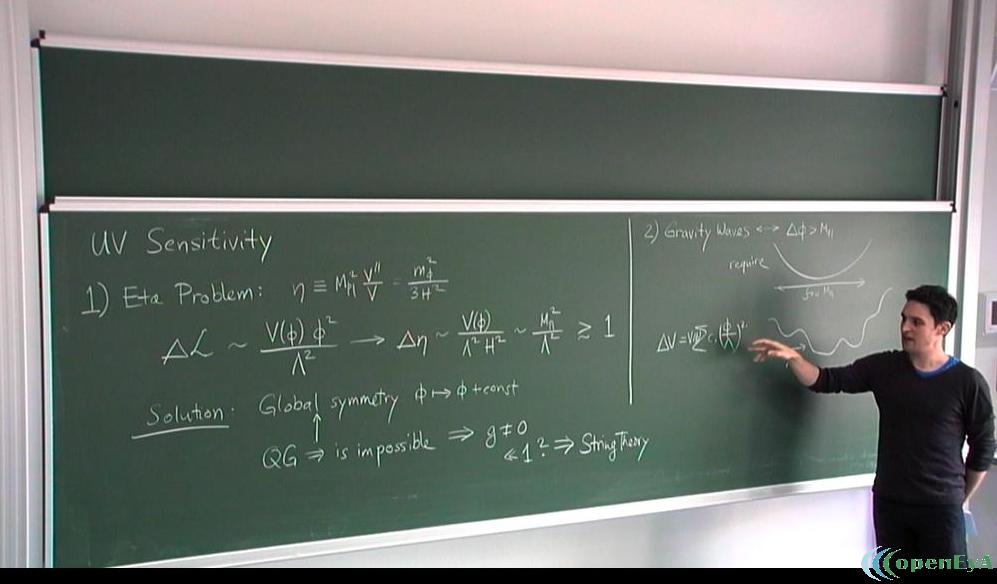 UV Sensitivity
1) Eta Problem: η ≡ M_Pl² V''/V = m_ϕ²/3H²
Δℒ ~ V(ϕ) ϕ²/Λ² → Δη ~ V(ϕ)/Λ²H² ~ M_Pl²/Λ² ≳ 1
Solution: Global symmetry ϕ ↦ ϕ + const
QG ⇒ is impossible ⇒ g ≠ 0
≪ 1 ? ⇒ String Theory
2) Gravity Waves ↔ Δϕ > M_Pl
require
ΔV = V
openEyA